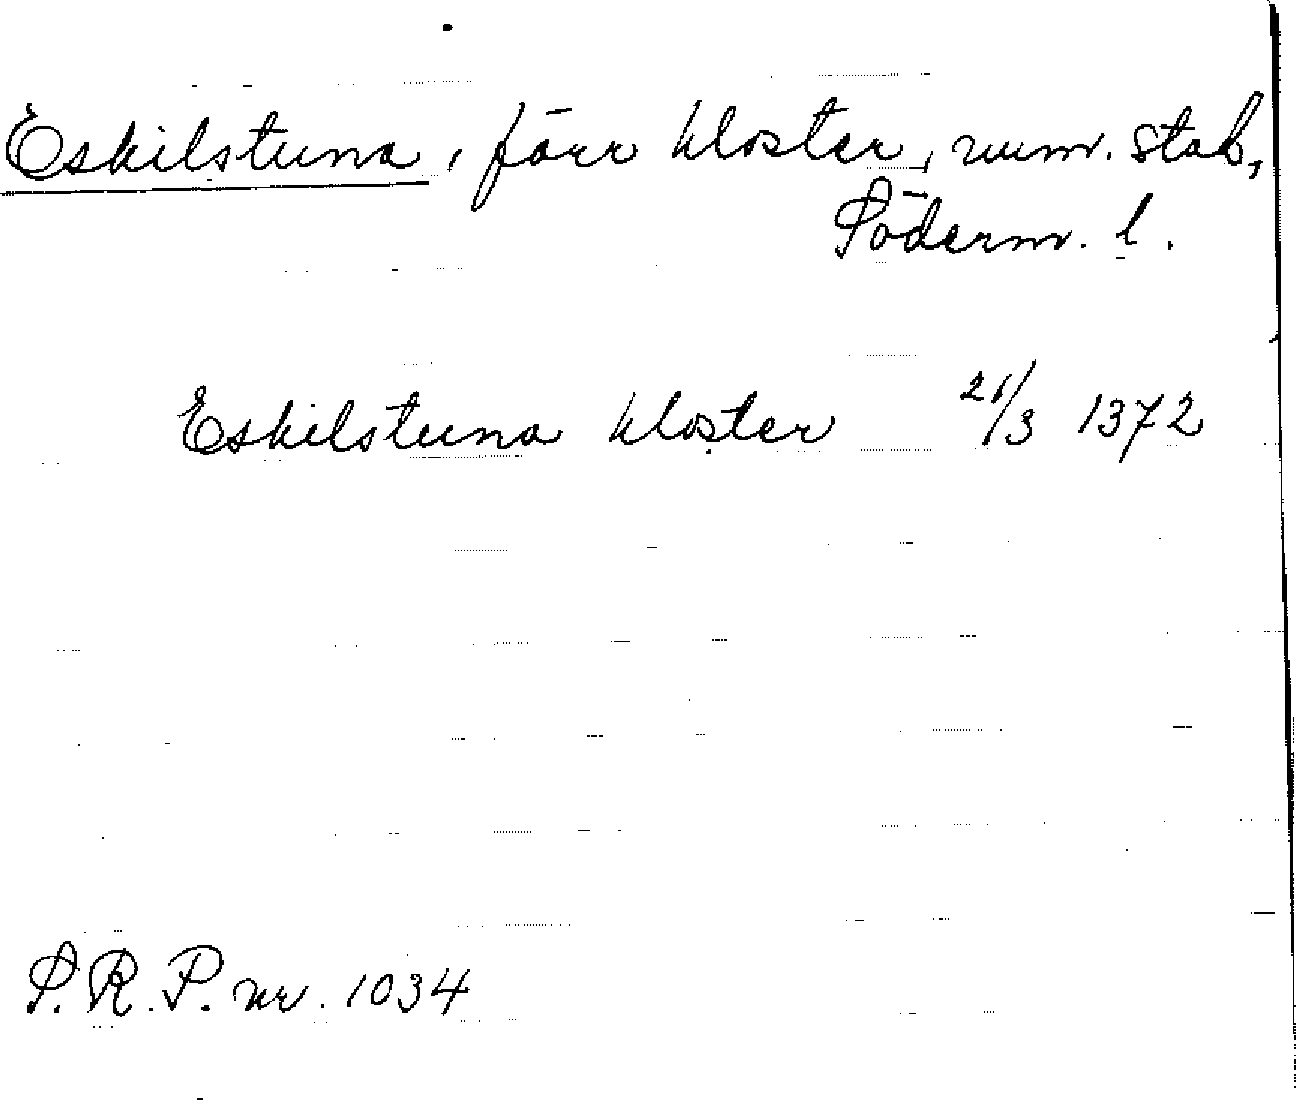 Eskilstuna, förr kloster, num. stad,
Söderm. l.
Eskilstuna kloster 21/3 1372
S.R.P. nr. 1034